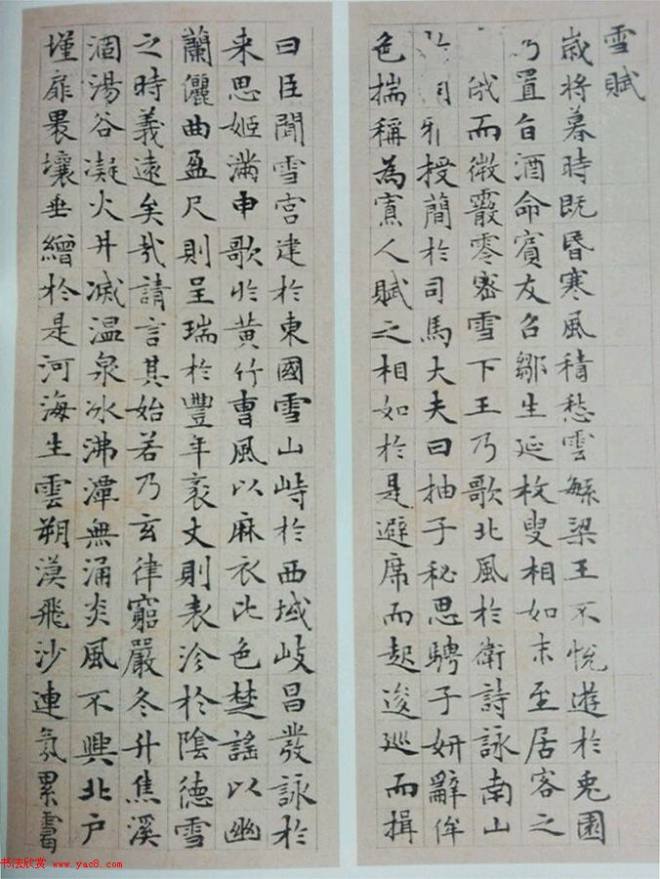 雪賦
歲将暮時既昏寒風積愁雲繁梁王不悅遊於兔園
乃置旨酒命賓友召鄒生延枚叟相如末至居客之
俄而微霰零密雪下王乃歌北風於衛詩詠南山
於周雅授簡於司馬大夫曰抽子秘思騁子妍辭侔
色揣稱為寡人賦之相如於是避席而起逡巡而揖
曰臣聞雪宮建於東國雪山峙於西域岐昌發詠於
来思姬滿申歌於黃竹曹風以麻衣比色楚謠以幽
蘭儷曲盈尺則呈瑞於豐年袤丈則表沴於陰德雪
之時義遠矣哉請言其始若乃玄律窮嚴冬升焦溪
涸湯谷凝火井滅温泉冰沸潭無涌炎風不興北户
墐扉裸壤垂繒於是河海生雲朔漠飛沙連氛累靄
书法欣赏 www.yac8.com